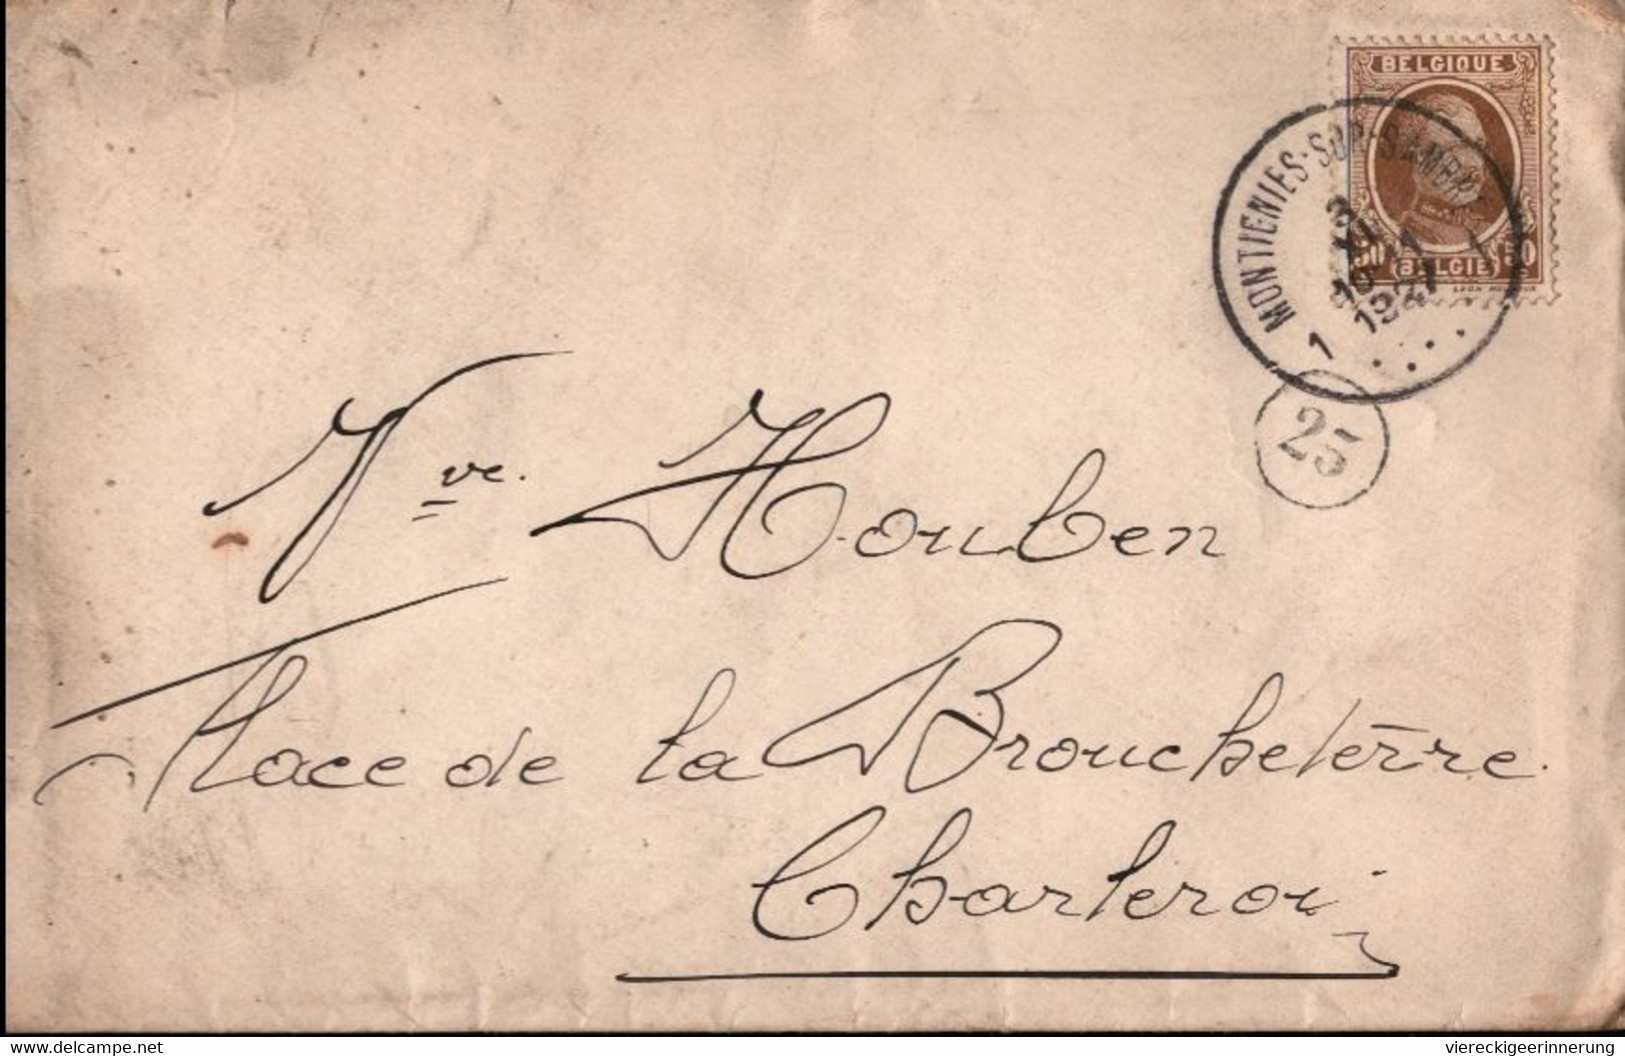 BELGIQUE
MONTIGNIES-SUR-SAMBRE
1 1927
50 BELGIË 50
25
Vve. Houben
Place de la Broucheterre.
Charleroi
delcampe.net
viereckigeerinnerung